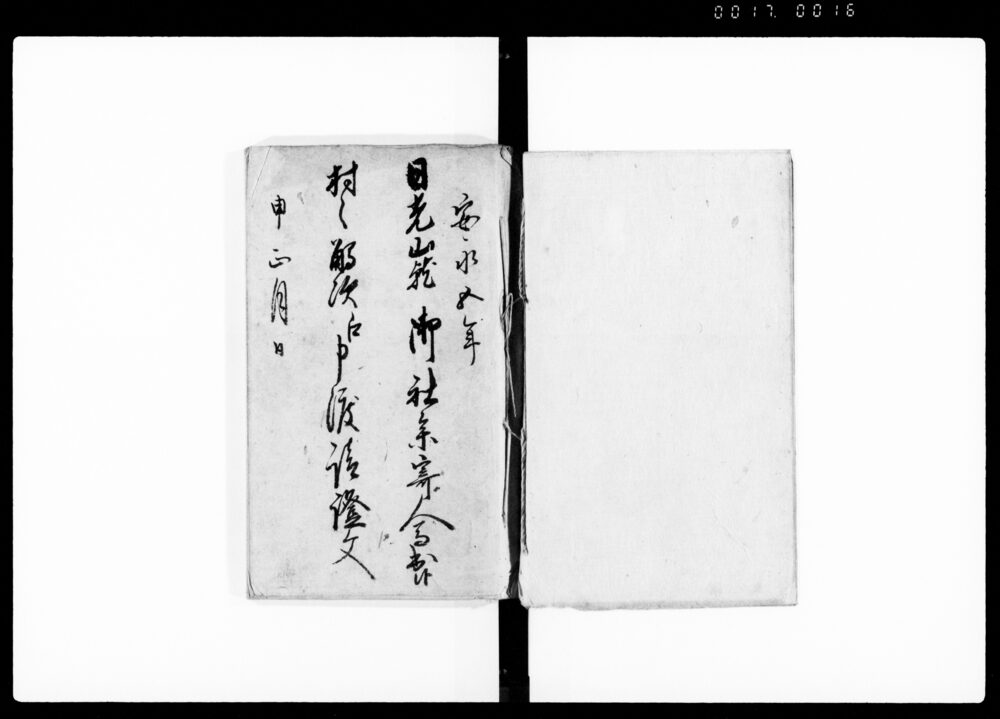 0017. 0016
安永五年
日光山就 御社参寄人馬
村々觸次申渡請證文
申正月日